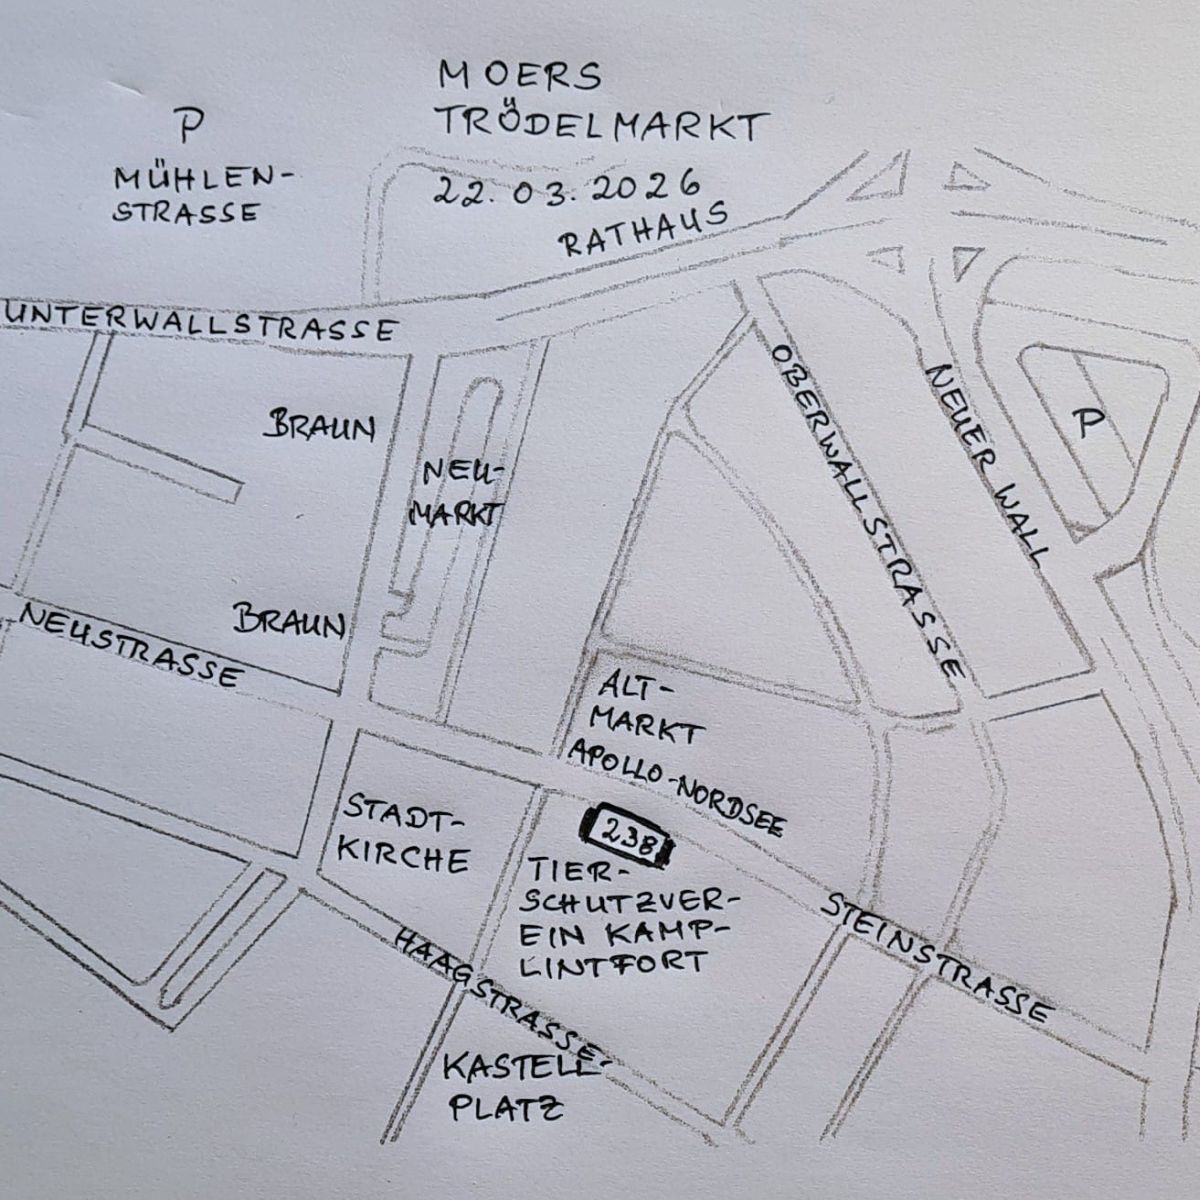 MOERS
TRÖDELMARKT
22.03.2026
P
MÜHLEN-
STRASSE
RATHAUS
UNTERWALLSTRASSE
BRAUN
NEU-
MARKT
OBERWALLSTRASSE
NEUER WALL
P
BRAUN
NEUSTRASSE
ALT-
MARKT
APOLLO-NORDSEE
STADT-
KIRCHE
238
TIER-
SCHUTZVER-
EIN KAMP-
LINTFORT
STEINSTRASSE
HAAGSTRASSE
KASTELL-
PLATZ